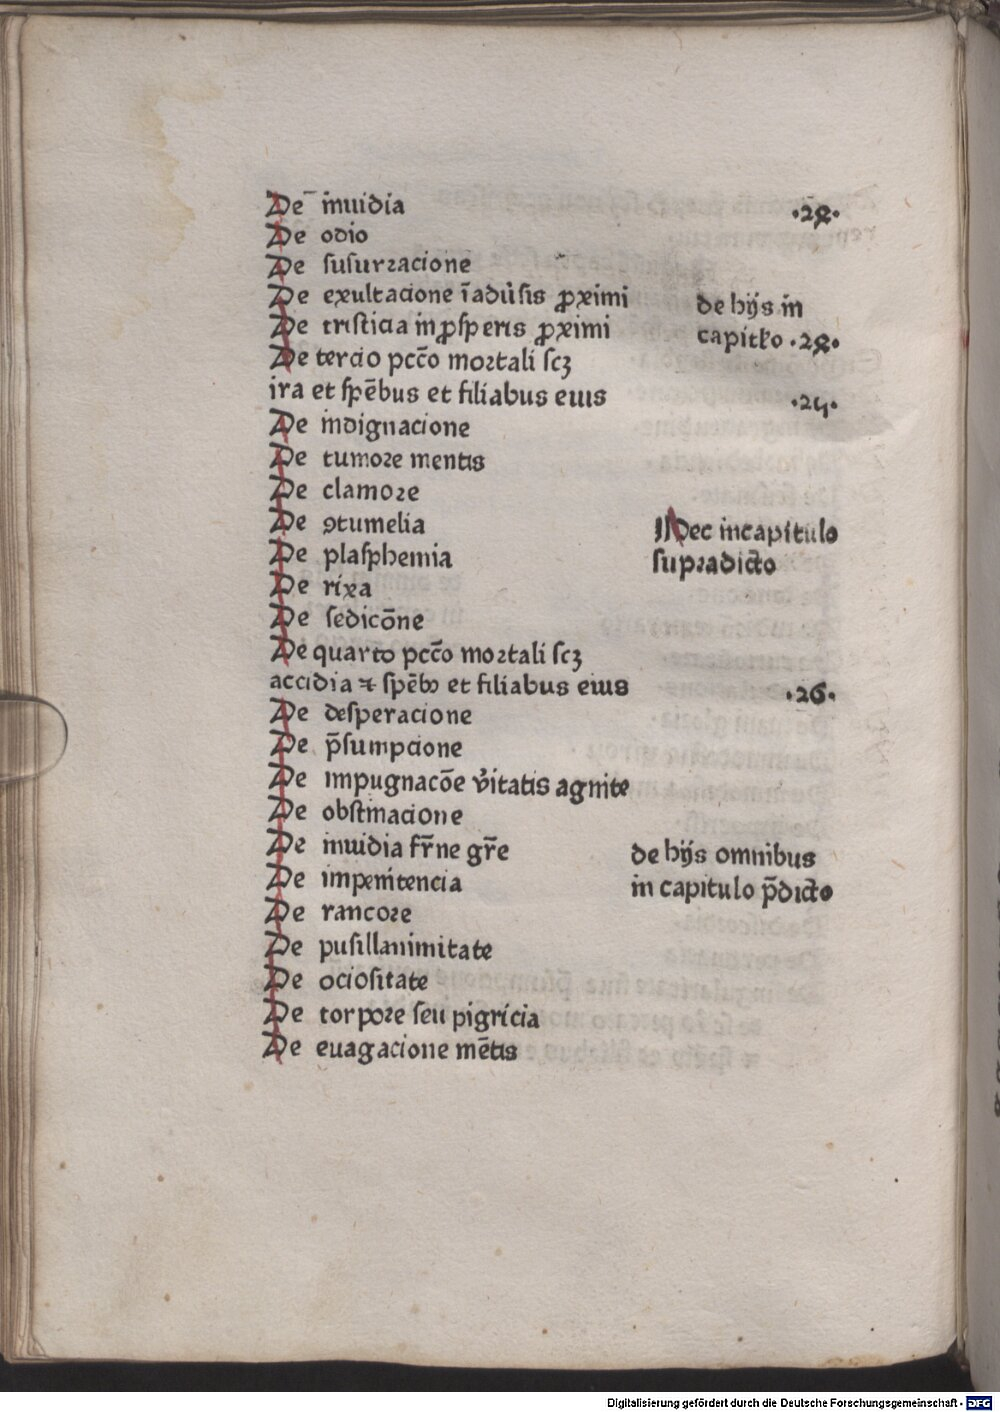 De inuidia .28.
De odio
De ſuſurꝛacione
De exultacione ī adúſis ꝓximi
De triſticia in ꝓſperis ꝓximi
de hijs in
capitł̶o .28.
De tercio pcc̄o moꝛtali ſcꝫ
ira et ſpēbus et filiabus eius .25.
De indignacione
De tumoꝛe mentis
De clamoꝛe
De ꝯtumelia
De plaſphemia
Hec in capitulo
ſupꝛadicto
De rixa
De ſedicōne
De quarto pcc̄o moꝛtali ſcꝫ
accidia ⁊ ſpēbꝫ et filiabus eius .26.
De deſperacione
De p̄ſumpcione
De impugnacōe v̓itatis agnite
De obſtinacione
De inuidia fr̄ne gr̄e
De impenitencia
de hijs omnibus
in capitulo p̄dicto
De rancoꝛe
De puſillanimitate
De ocioſitate
De torpoꝛe ſeu pigricia
De euagacione mētis
Digitalisierung gefördert durch die Deutsche Forschungsgemeinschaft - DFG